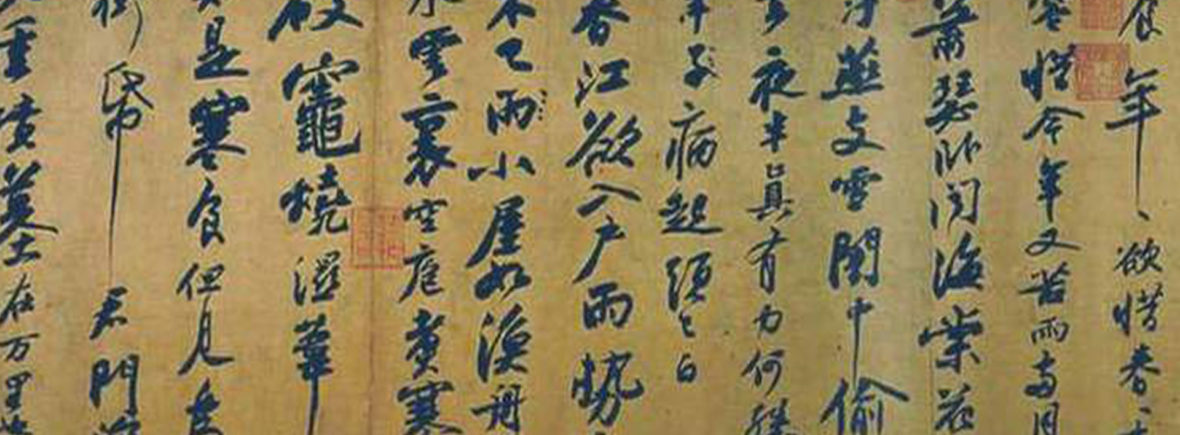 食年、欲惜春〻
容惜今年又苦雨兩月
蕭瑟卧聞海棠花
汙燕支雪闇中偷
夜半真有力何殊
年子病起須已白
春江欲入戶雨勢
不已雨小屋如漁舟
水雲裏空庖煮寒
破竈燒濕葦
是寒食但見烏
銜帋君門深
重墳墓在万里